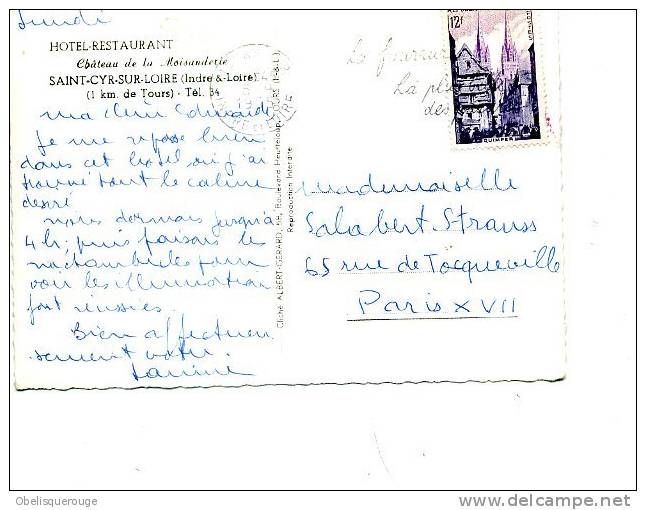 Lundi
HOTEL-RESTAURANT
Château de la Moisanderie
SAINT-CYR-SUR-LOIRE (Indre & Loire)
(1 km. de Tours) - Tél. 34
ma chère
Je me repose bien
dans cet hotel où j'ai
trouvé tout le calme
désiré
nous dormons jusqu'à
4 h, puis faisons les
pour
voir les illuminations
fort réussies.
Bien affectueu
sement votre
Janine
Cliché ALBERT-GERARD, Boulevard Heurteloup, TOURS (I.-&-L.)
Reproduction Interdite
12F
QUIMPER
La
des
INDRE ET LOIRE
Mademoiselle
Salabert-Strauss
65 rue de Tocqueville
Paris XVII
Obelisquerouge
www.delcampe.net